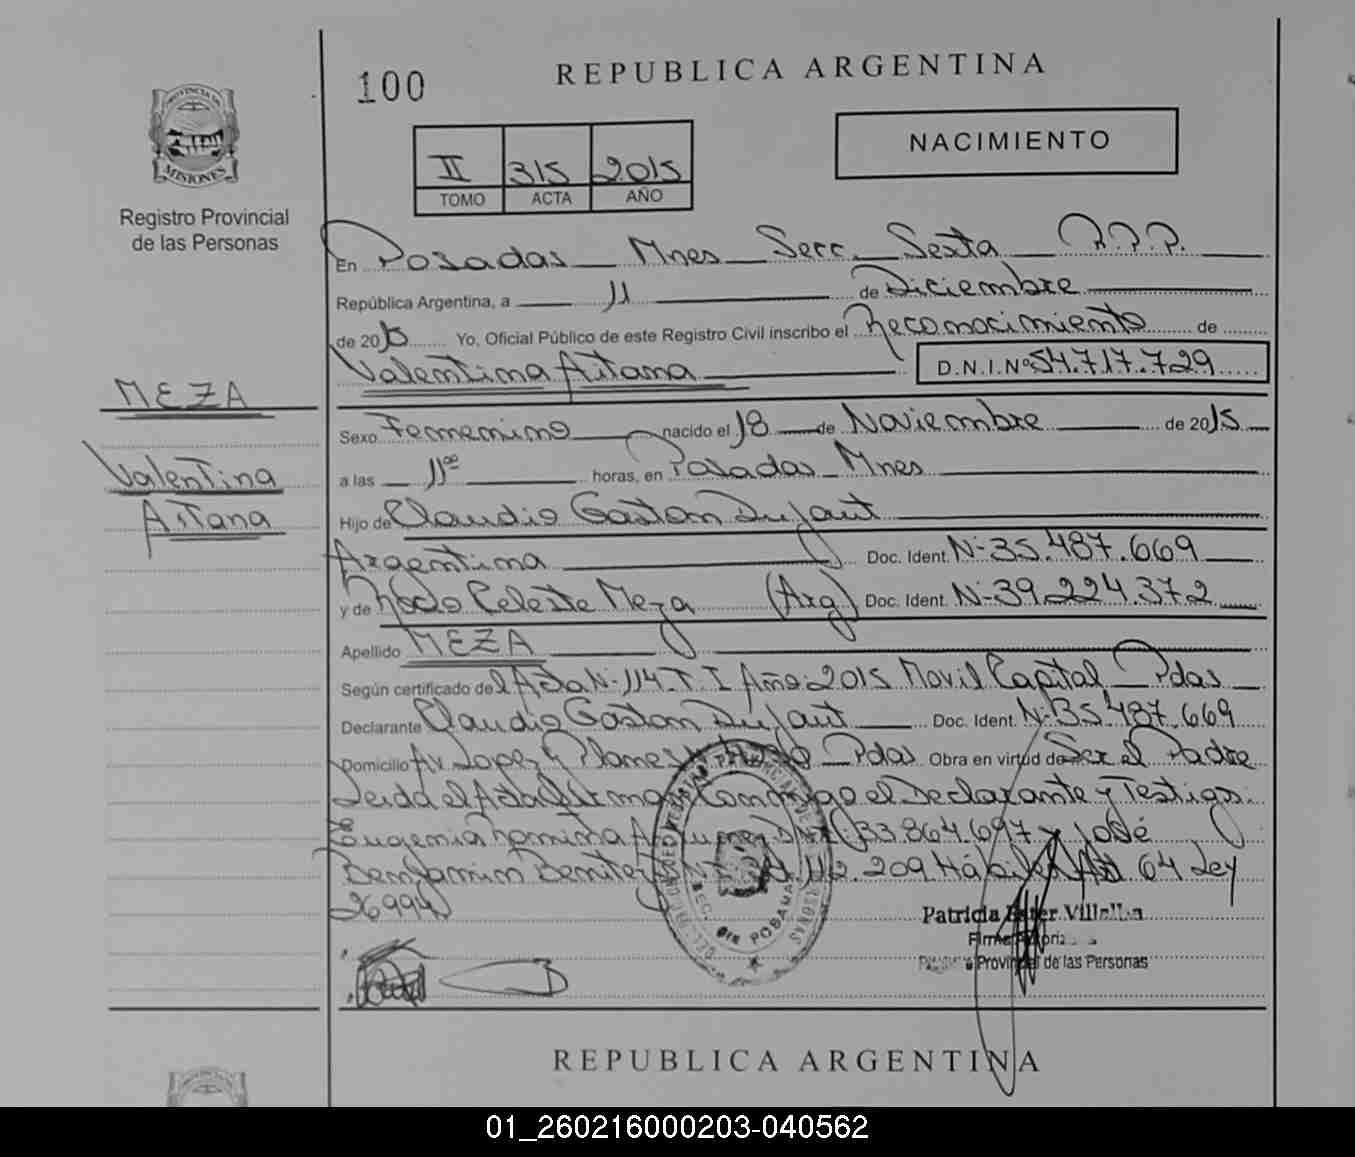 100
REPUBLICA ARGENTINA
PROVINCIA DE
MISIONES
Registro Provincial
de las Personas
NACIMIENTO
II 315 2015
TOMO ACTA AÑO
En Posadas Mnes Secc. Sexta R.P.P.
República Argentina, a 11 de Diciembre
de 2015 Yo, Oficial Público de este Registro Civil inscribo el Reconocimiento de
Valentina Aitana D.N.I.Nº 54.717.729
MEZA
Valentina
Aitana
Sexo Femenino nacido el 18 de Noviembre de 2015
a las 11⁰⁰ horas, en Posadas Mnes
Hijo de Claudio Gaston Dujaut
Argentina Doc. Ident. Nº 35.487.669
y de Rocio Celeste Meza (Arg) Doc. Ident. Nº 39.224.372
Apellido MEZA
Según certificado del Acta Nº 114 T. I Año 2015 Movil Capital Pdas
Declarante Claudio Gaston Dujaut Doc. Ident. Nº 35.487.669
Domicilio Av Lopez y Planes Pdas Obra en virtud de Ser el Padre
Leida el Acta firma Conmigo el Declarante y Testigo.
Eugenia 33.864.697 y José
Benjamin Benitez 209 Hábiles Art. 64 Ley
26994
Patricia Ester
Firma Autoriz
Provincial de las Personas
REPUBLICA ARGENTINA
01_260216000203-040562